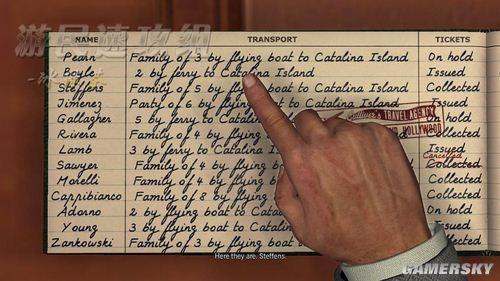 游民速攻组
NAME TRANSPORT TICKETS
Pearn Family of 3 by flying boat to Catalina Island On hold
Boyle 2 by ferry to Catalina Island Issued
Steffens Family of 5 by flying boat to Catalina Island Collected
Jimenez Party of 6 by flying boat to Catalina Island Issued
Gallagher 5 by ferry to Catalina On hold
Rivera Family of 4 by flying Collected
Lamb 3 by ferry to Catalina Issued
Cancelled
Sawyer Family of 4 by flying Collected
Morelli Family of 4 by flying Collected
Cappibianco Family of 8 by flying Collected
Adorno 2 by flying boat to Catalina On hold
Young 3 by flying boat to Issued
Zankowski Family of 3 by flying boat Collected
TRAVEL AGENCY
HOLLYWOOD
Here they are. Steffens.
GAMERSKY